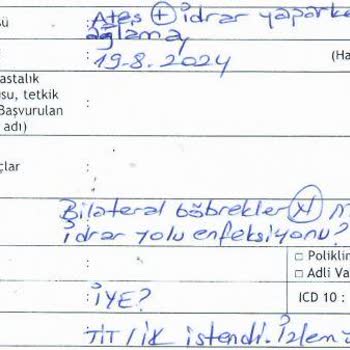 sü : Ateş ⊕ idrar yaparke
ağlama
: 19-8.2024 (Ha
astalık
su, tetkik
Başvurulan :
adı)
çlar :
Bilateral böbrekler
İdrar yolu enfeksiyonu?
: □ Poliklin
□ Adli Va
: İYE? ICD 10 :
TİT / İK istendi. İzlem